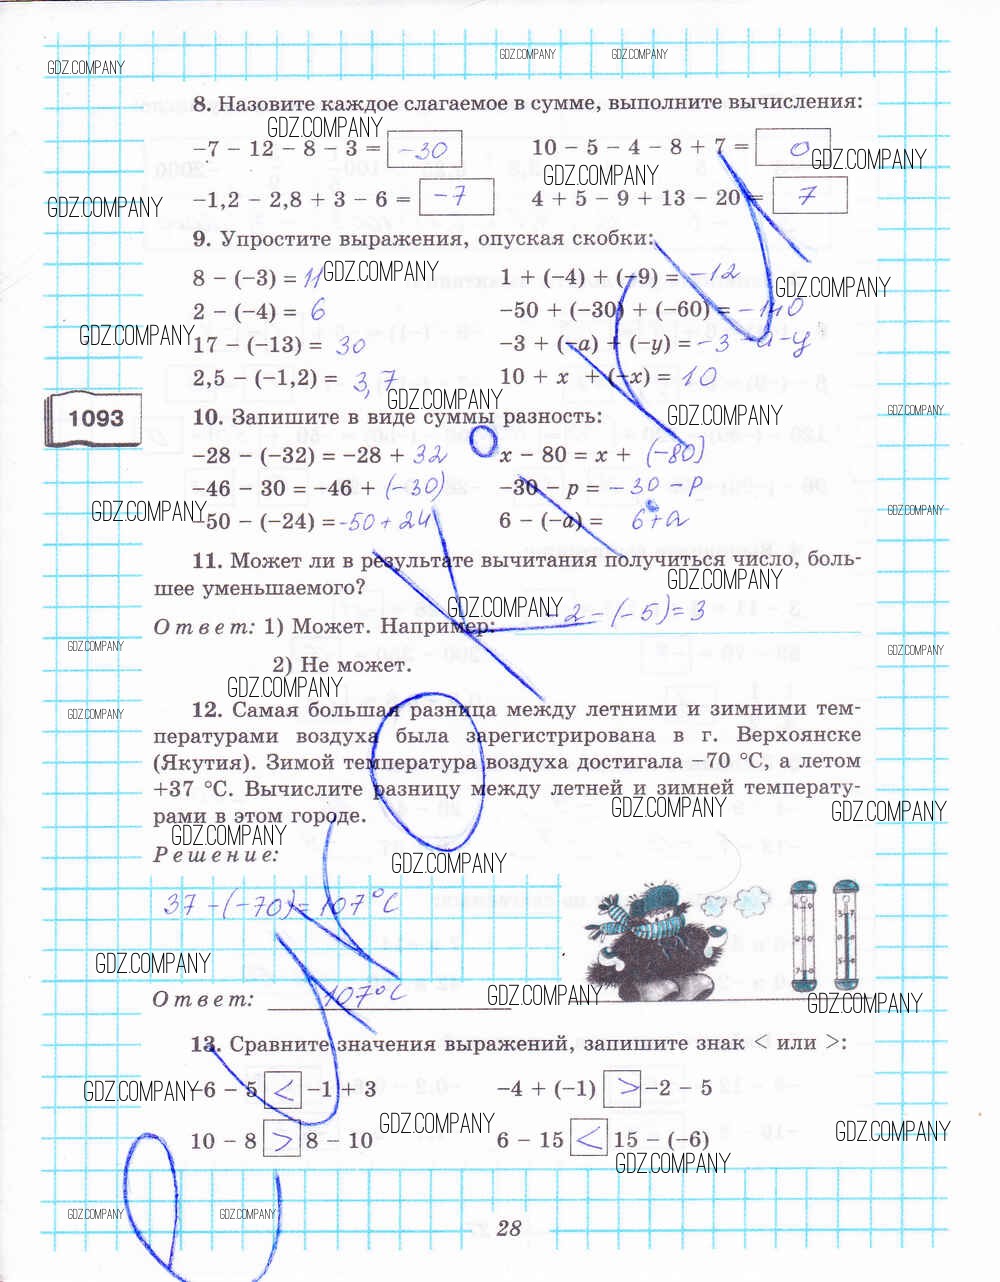 GDZ.COMPANY GDZ.COMPANY GDZ.COMPANY
8. Назовите каждое слагаемое в сумме, выполните вычисления:
GDZ.COMPANY
−7 − 12 − 8 − 3 = −30 10 − 5 − 4 − 8 + 7 = 0
GDZ.COMPANY GDZ.COMPANY
−1,2 − 2,8 + 3 − 6 = −7 4 + 5 − 9 + 13 − 20 = 7
GDZ.COMPANY
9. Упростите выражения, опуская скобки:
8 − (−3) = 11 GDZ.COMPANY 1 + (−4) + (−9) = −12
GDZ.COMPANY
2 − (−4) = 6 −50 + (−30) + (−60) = −140
GDZ.COMPANY
17 − (−13) = 30 −3 + (−a) + (−y) = −3 −a −y
2,5 − (−1,2) = 3,7 10 + x + (−x) = 10
GDZ.COMPANY GDZ.COMPANY GDZ.COMPANY
1093
10. Запишите в виде суммы разность:
−28 − (−32) = −28 + 32 x − 80 = x + (−80)
−46 − 30 = −46 + (−30) −30 − p = −30 −p
GDZ.COMPANY GDZ.COMPANY
−50 − (−24) = −50 + 24 6 − (−a) = 6+a
11. Может ли в результате вычитания получиться число, боль-
шее уменьшаемого?
GDZ.COMPANY
GDZ.COMPANY
Ответ: 1) Может. Например: −2 − (−5) = 3
GDZ.COMPANY GDZ.COMPANY
2) Не может.
GDZ.COMPANY
GDZ.COMPANY
12. Самая большая разница между летними и зимними тем-
пературами воздуха была зарегистрирована в г. Верхоянске
(Якутия). Зимой температура воздуха достигала −70 °C, а летом
+37 °C. Вычислите разницу между летней и зимней температу-
рами в этом городе.
GDZ.COMPANY GDZ.COMPANY
GDZ.COMPANY
Решение:
GDZ.COMPANY
37 − (−70) = 107°C
GDZ.COMPANY
Ответ: 107°C
GDZ.COMPANY GDZ.COMPANY
13. Сравните значения выражений, запишите знак < или >:
GDZ.COMPANY
−6 − 5 < −1 + 3 −4 + (−1) > −2 − 5
GDZ.COMPANY GDZ.COMPANY
10 − 8 > 8 − 10 6 − 15 < 15 − (−6)
GDZ.COMPANY
GDZ.COMPANY GDZ.COMPANY
28